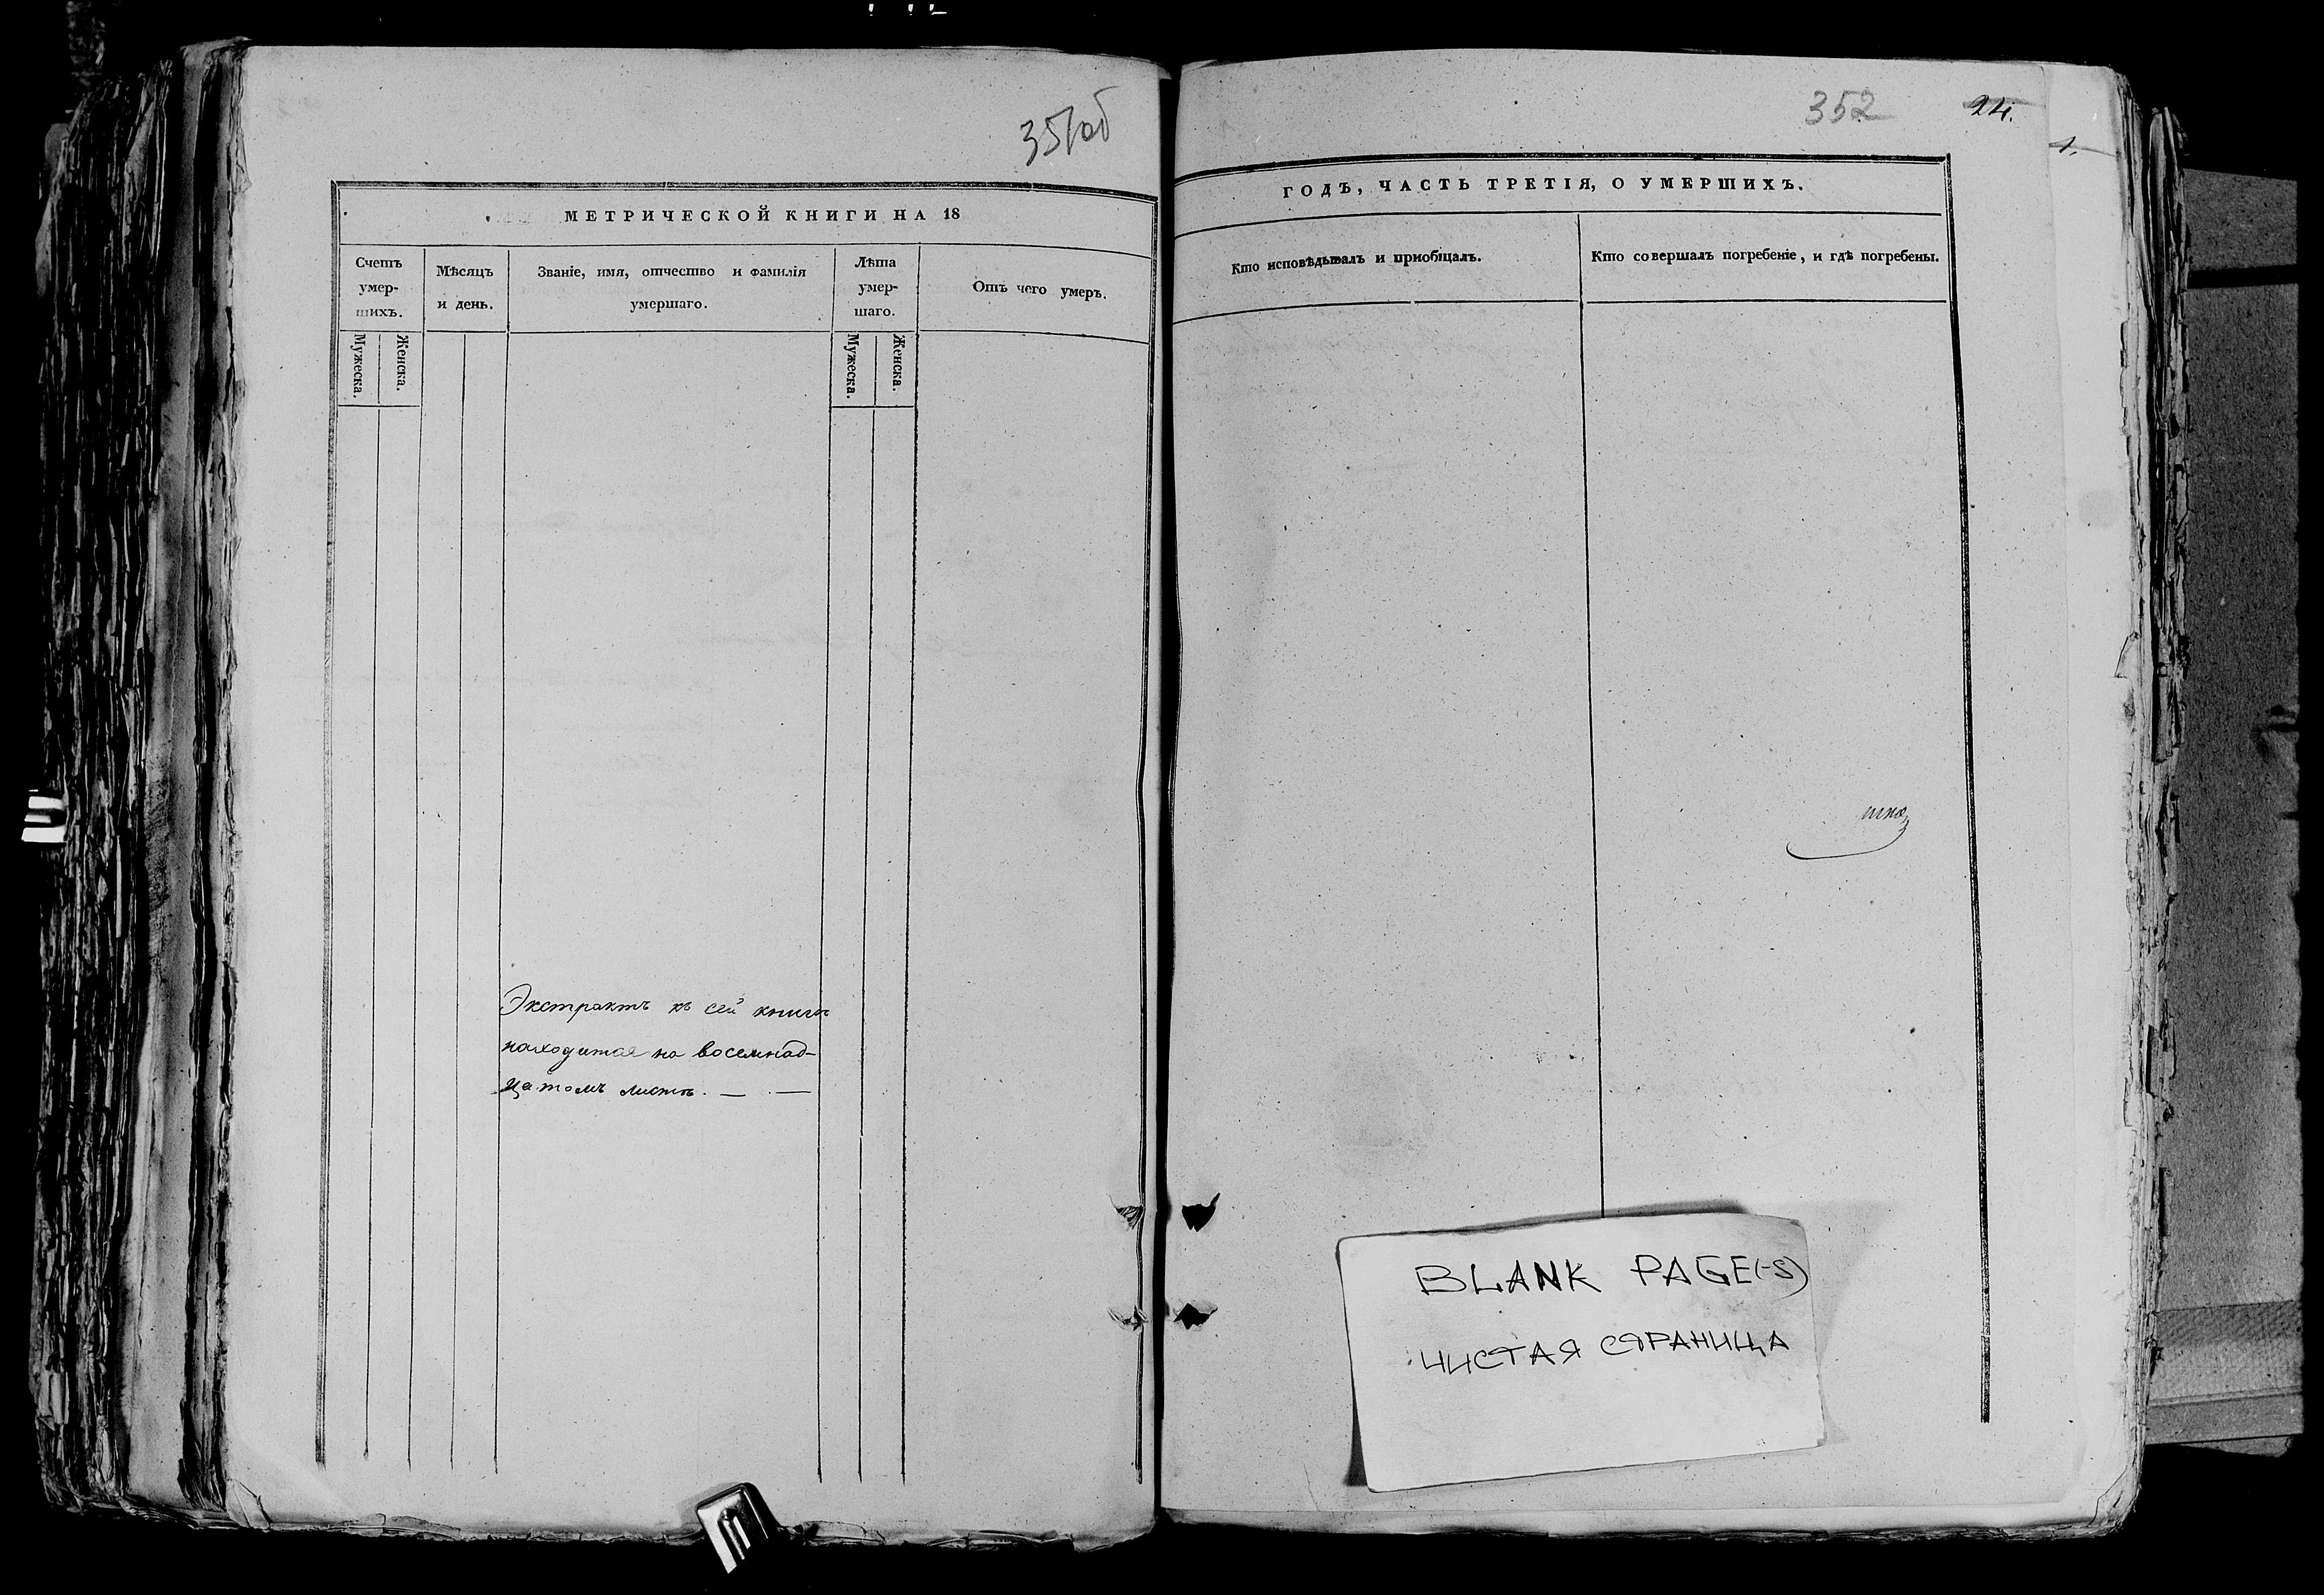 351об
МЕТРИЧЕСКОЙ КНИГИ НА 18
Счетъ умер- шихъ.
Мѣсяцъ и день.
Званіе, имя, отчество и фамилія умершаго.
Лѣта умер- шаго.
Отъ чего умеръ.
Мужеска.
Женска.
Мужеска.
Женска.
Экстрактъ къ сей книгѣ
находится на восемнад-
цатомъ листѣ. — . —
352
24.
1.
ГОДЪ, ЧАСТЬ ТРЕТІЯ, О УМЕРШИХЪ.
Кто исповѣдывалъ и приобщалъ.
Кто совершалъ погребеніе, и гдѣ погребены.
BLANK PAGE(-S)
ЧИСТАЯ СТРАНИЦА